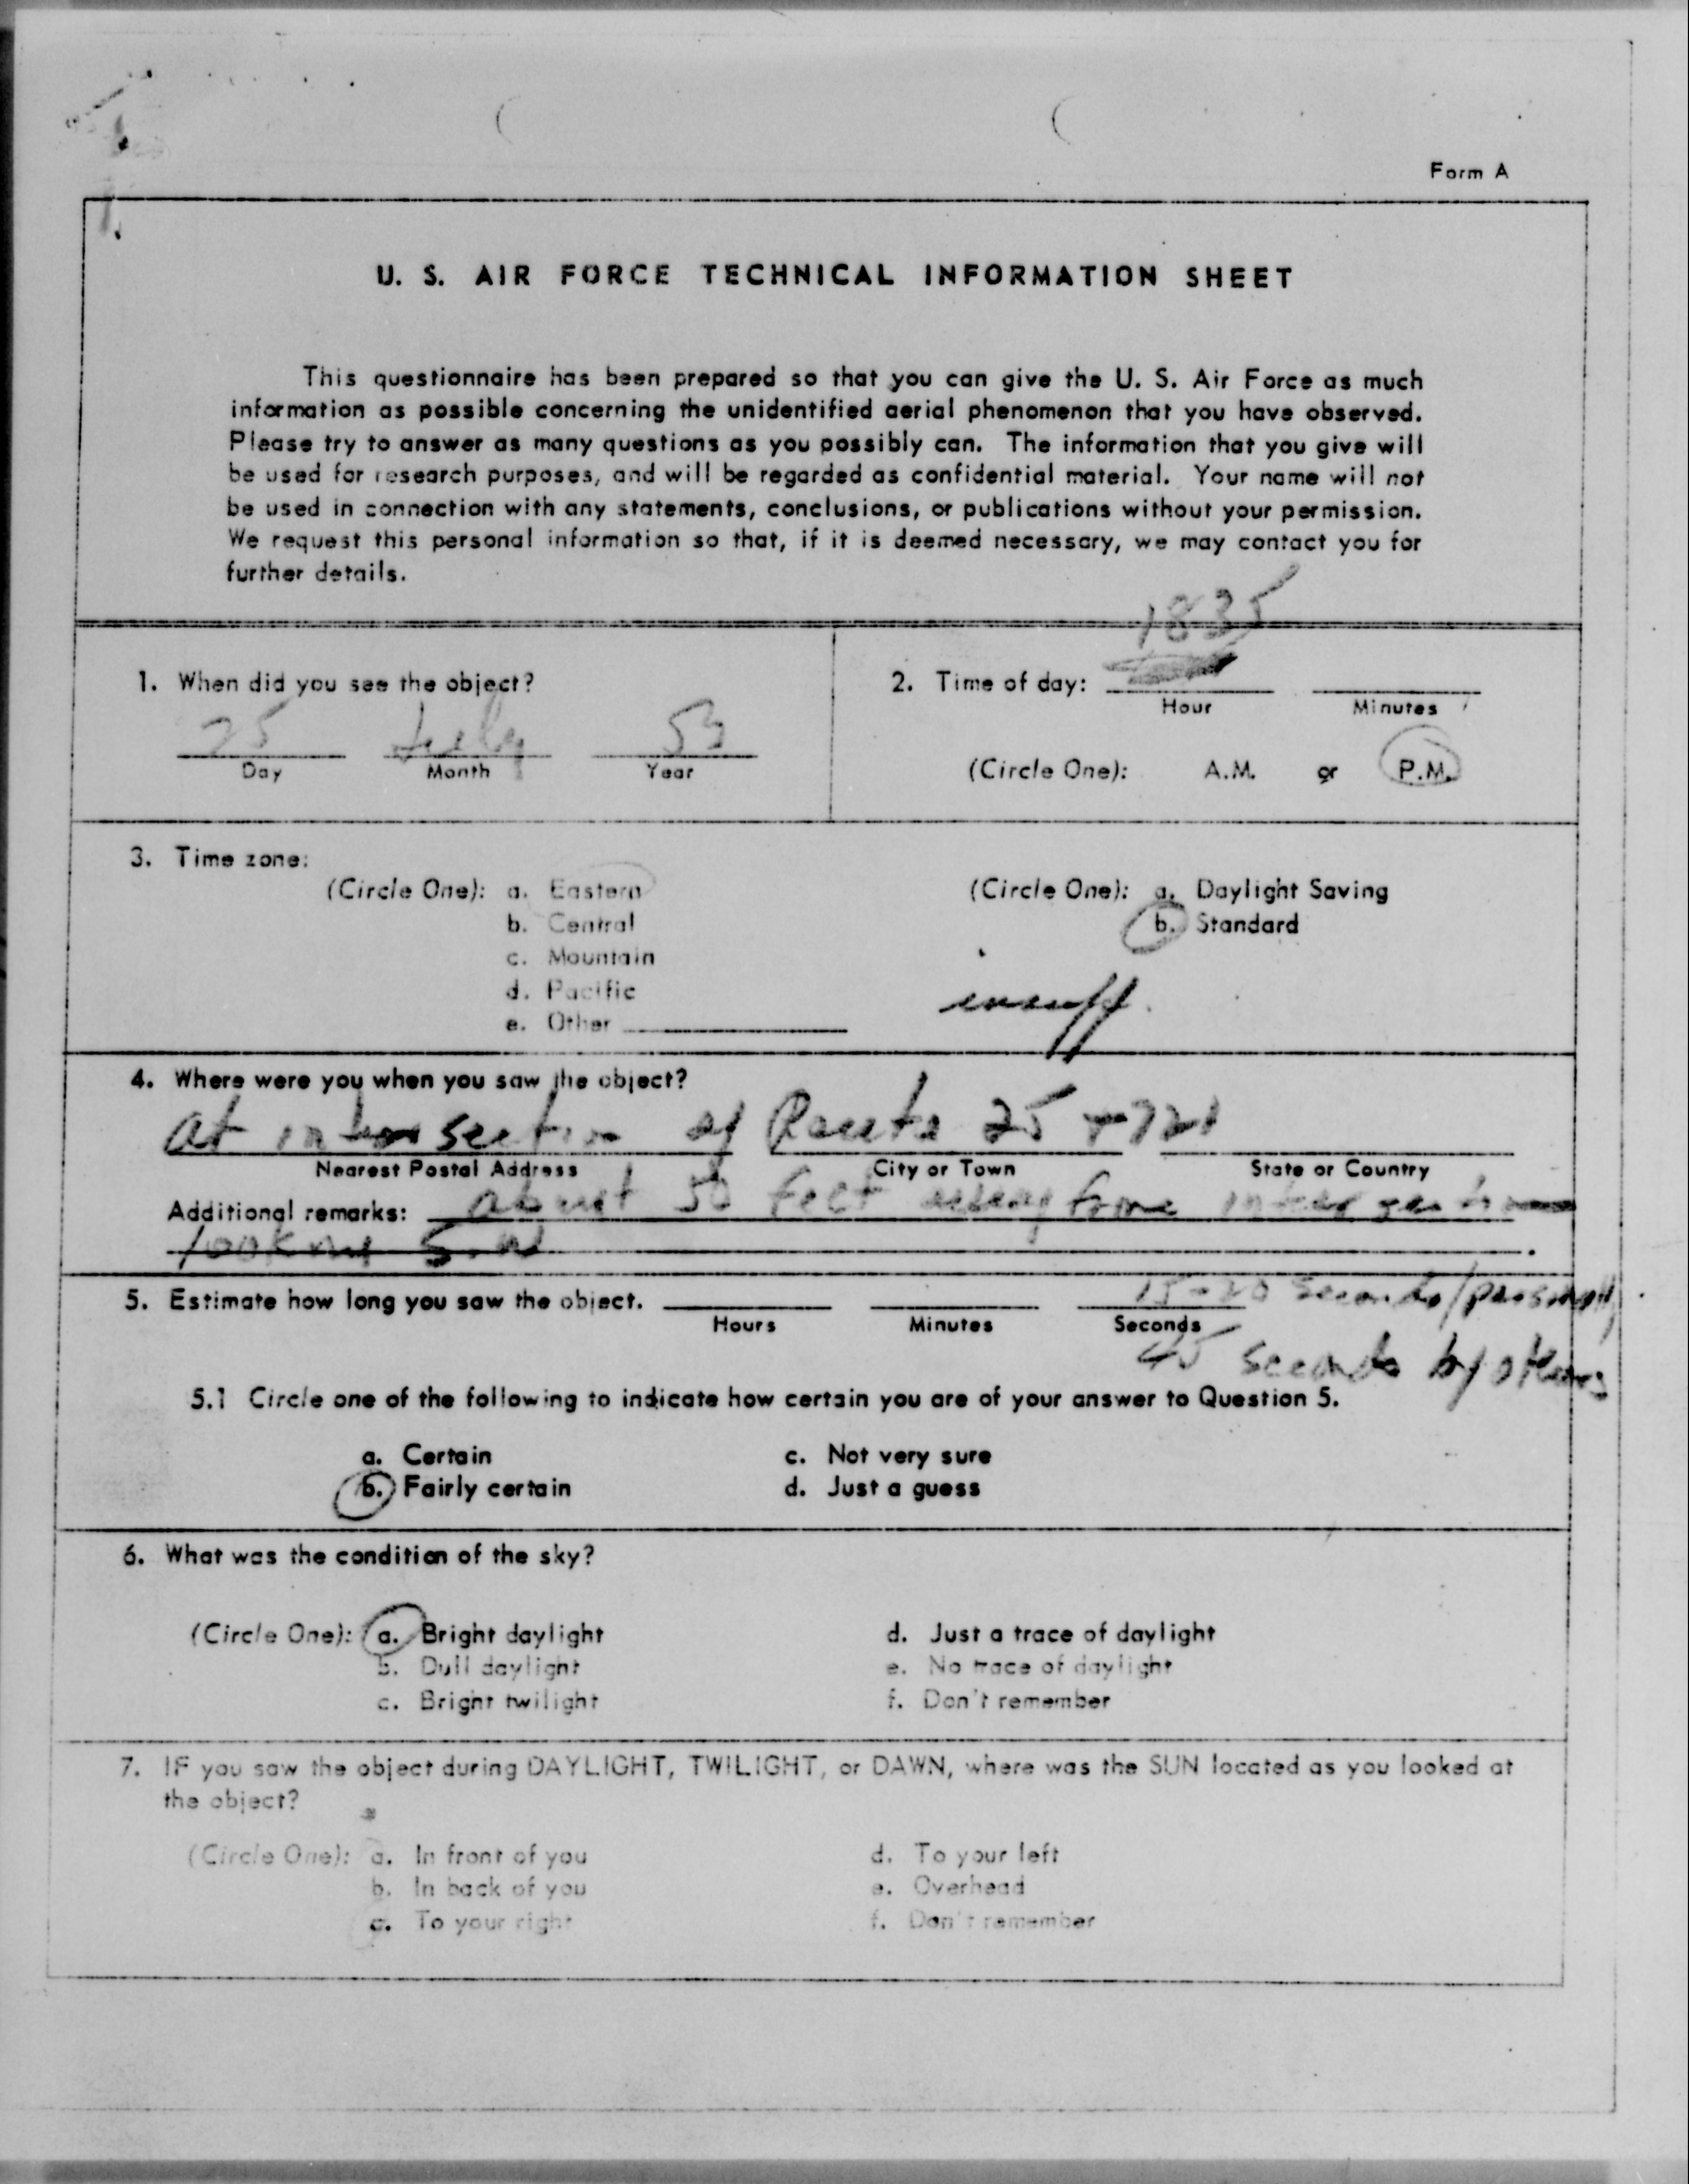 Form A
U. S. AIR FORCE TECHNICAL INFORMATION SHEET
This questionnaire has been prepared so that you can give the U. S. Air Force as much
information as possible concerning the unidentified aerial phenomenon that you have observed.
Please try to answer as many questions as you possibly can. The information that you give will
be used for research purposes, and will be regarded as confidential material. Your name will not
be used in connection with any statements, conclusions, or publications without your permission.
We request this personal information so that, if it is deemed necessary, we may contact you for
further details.
1835
1. When did you see the object?
25 July 53
Day Month Year
2. Time of day:
Hour Minutes
(Circle One): A.M. or P.M.
3. Time zone:
(Circle One): a. Eastern
b. Central
c. Mountain
d. Pacific
e. Other
(Circle One): a. Daylight Saving
b. Standard
insuff.
4. Where were you when you saw the object?
at intersection of Route 25 + 721
Nearest Postal Address City or Town State or Country
Additional remarks: about 50 feet away from intersection
looking S.W
5. Estimate how long you saw the object. 15-20 seconds/personally
Hours Minutes Seconds
45 seconds by others
5.1 Circle one of the following to indicate how certain you are of your answer to Question 5.
a. Certain c. Not very sure
b. Fairly certain d. Just a guess
6. What was the condition of the sky?
(Circle One): a. Bright daylight d. Just a trace of daylight
b. Dull daylight e. No trace of daylight
c. Bright twilight f. Don't remember
7. IF you saw the object during DAYLIGHT, TWILIGHT, or DAWN, where was the SUN located as you looked at
the object?
(Circle One): a. In front of you d. To your left
b. In back of you e. Overhead
c. To your right f. Don't remember